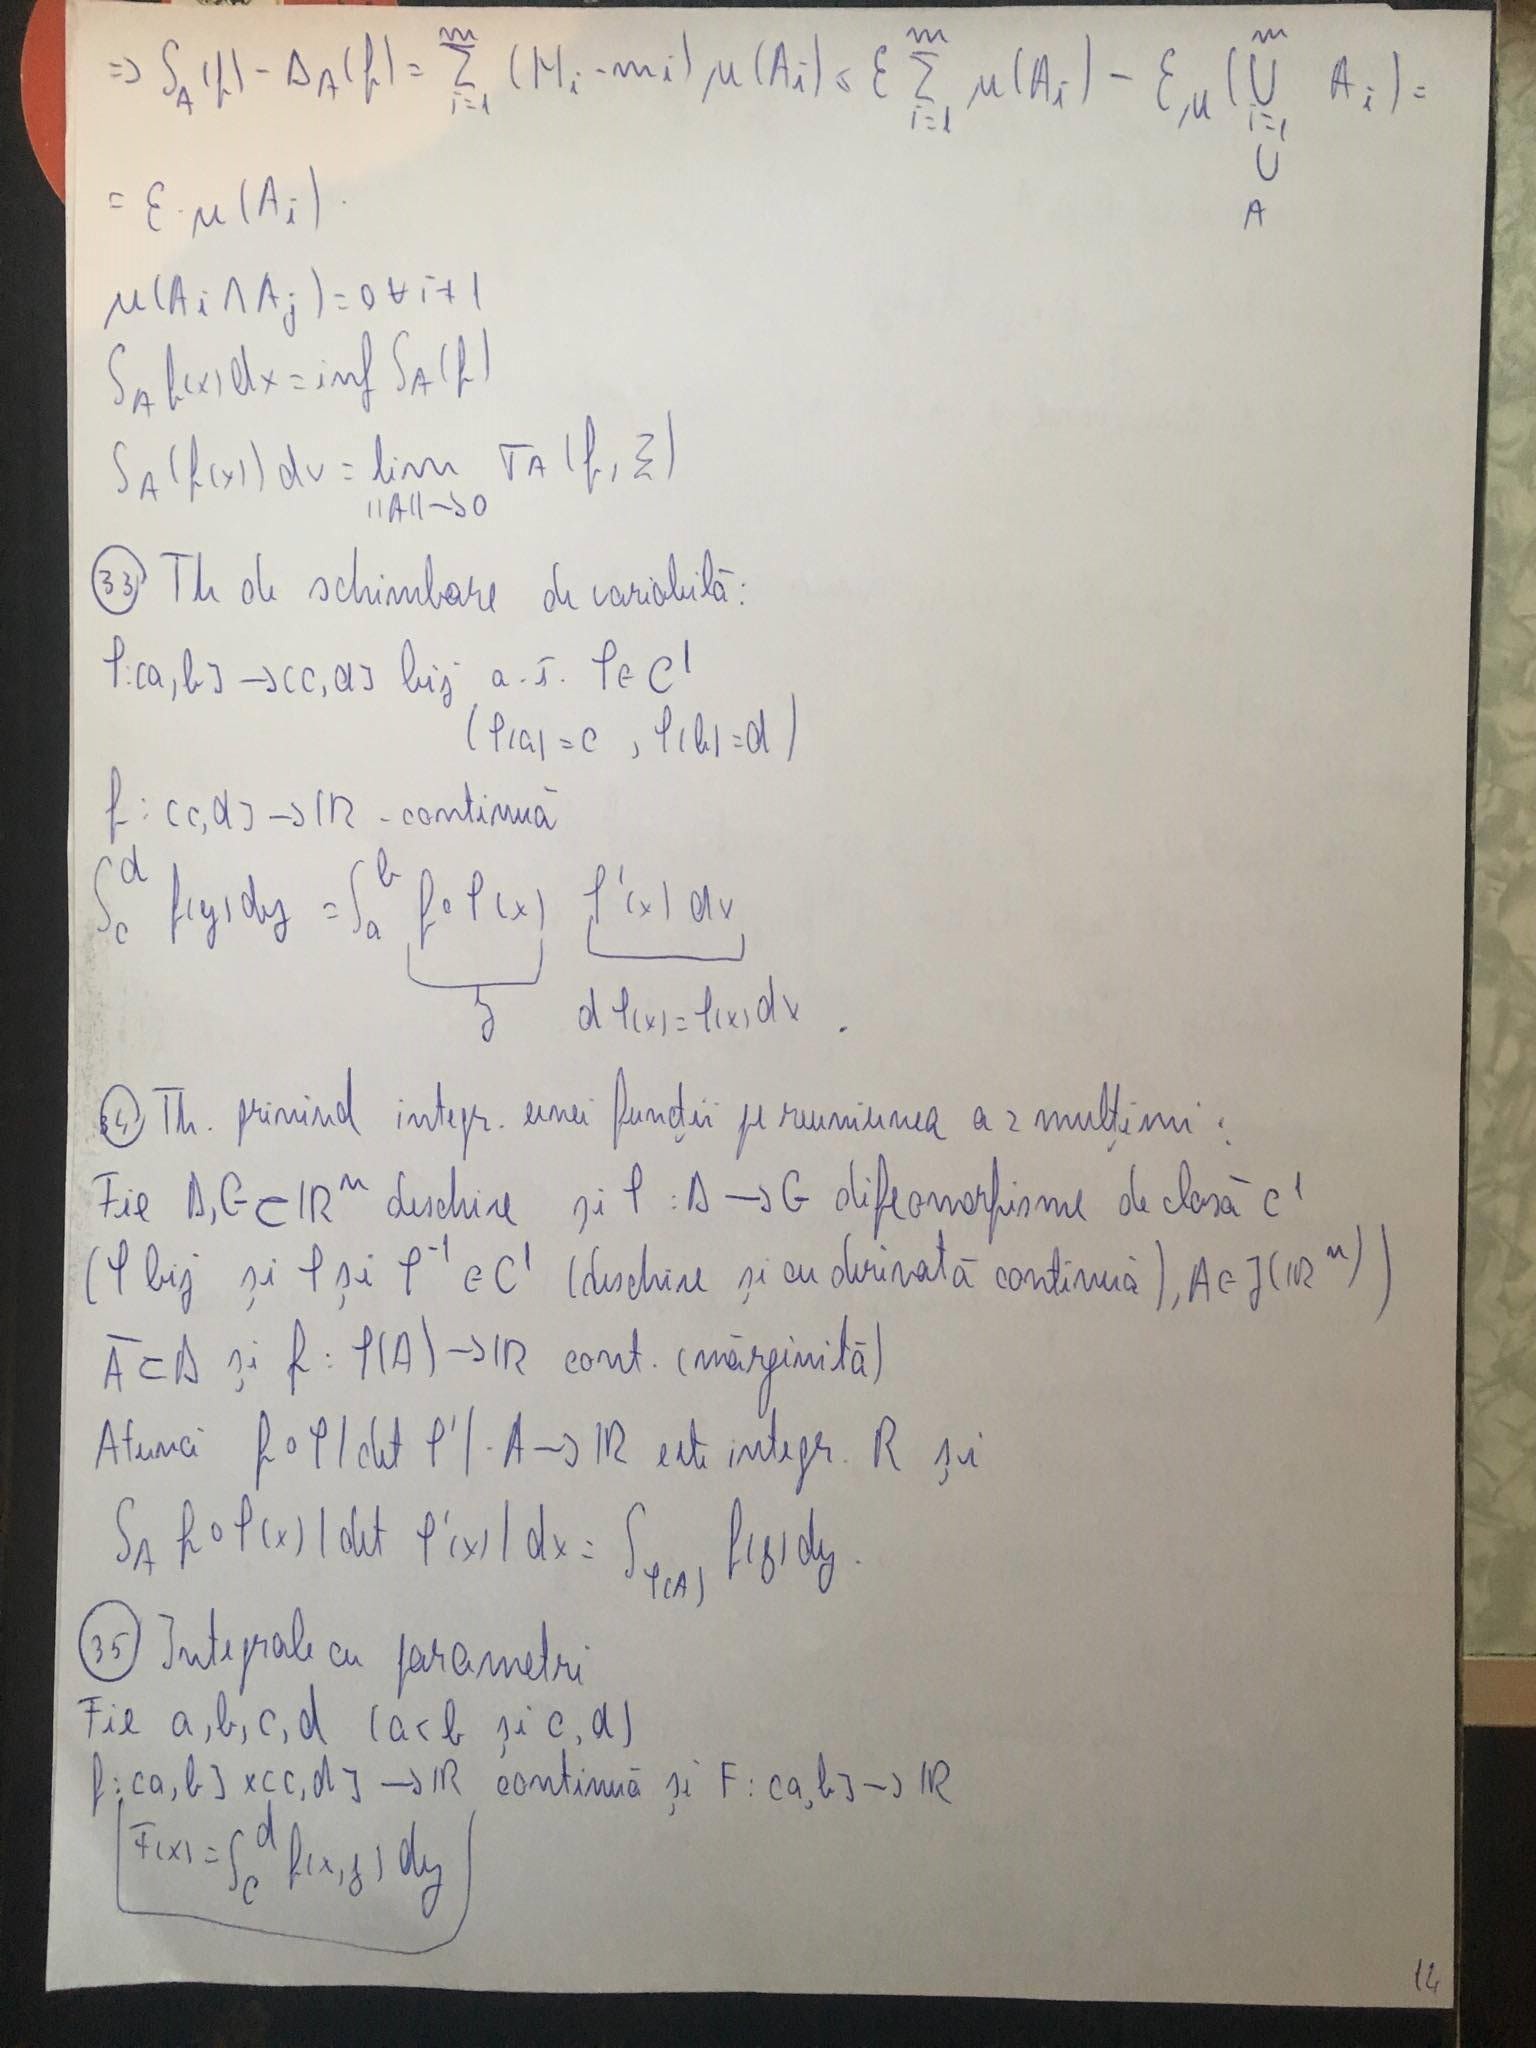 => S_A(f) - Δ_A(f) = Σ_{i=1}^{m} (M_i - m_i) μ(A_i) ≤ ε Σ_{i=1}^{m} μ(A_i) - ε μ(∪_{i=1}^{m} A_i) =
∪
A
= ε·μ(A_i).
μ(A_i ∩ A_j) = 0 ∀ i ≠ 1
∫_A f(x) dx = inf S_A(f)
∫_A (f(x)) dx = lim_{||A||→0} ∇_A (f, Σ)
(33) Th de schimbare de variabilă:
φ: [a,b] → [c,d] bij a.î. φ ∈ C'
(φ(a) = c, φ(b) = d)
f: [c,d] → ℝ - continuă
∫_c^d f(y) dy = ∫_a^b f∘φ(x) φ'(x) dx
y dφ(x) = φ(x) dx.
34) Th. privind integr. unei funcții pe reuniunea a 2 mulțimi:
Fie Δ, G ⊂ ℝ^n deschise și φ: Δ → G difeomorfisme de clasă C'
(φ bij și φ și φ^{-1} ∈ C' (deschise și cu derivată continuă), A ∈ J(ℝ^n))
Ā ⊂ Δ și f: φ(A) → ℝ cont. (mărginită)
Atunci f∘φ|det φ'|·A → ℝ este integr. R și
∫_A f∘φ(x) |det φ'(x)| dx = ∫_{φ(A)} f(y) dy.
(35) Integrale cu parametri
Fie a, b, c, d (a < b și c, d)
f: [a,b] × [c,d] → ℝ continuă și F: [a,b] → ℝ
F(x) = ∫_c^d f(x,y) dy
14